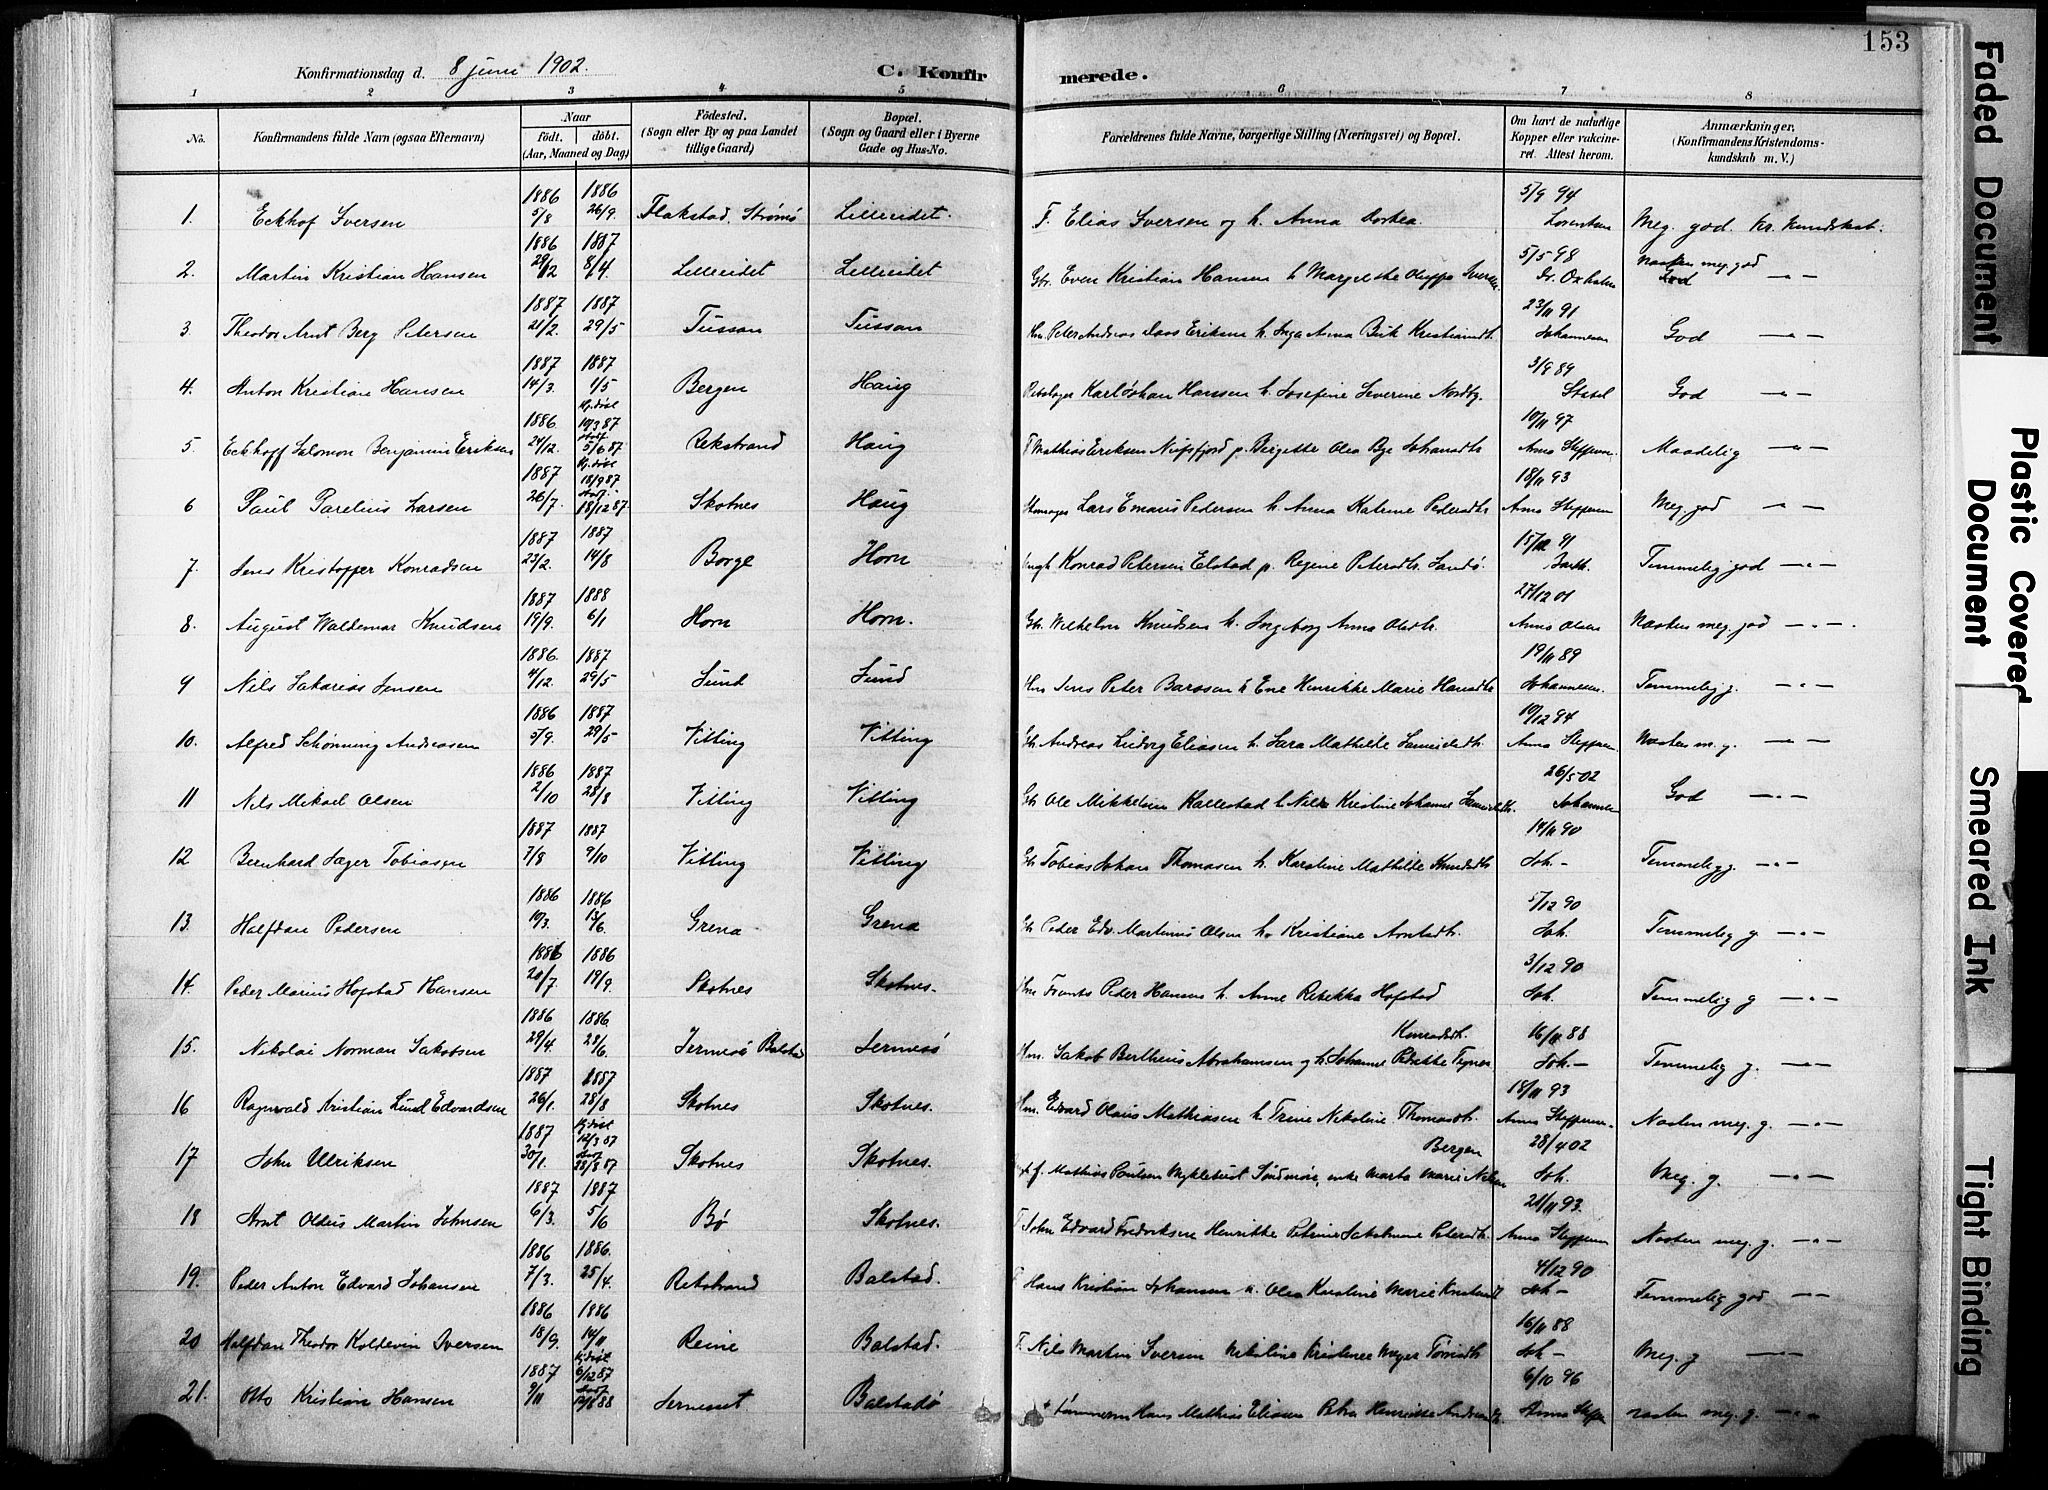 153
Konfirmationsdag d. 8 juni 1902.
C. Konfirmerede.
1 2 3 4 5 6 7 8
No.
Konfirmandens fulde Navn (ogsaa Efternavn)
Naar
født. døbt.
(Aar, Maaned og Dag)
Fødested.
(Sogn eller By og paa Landet
tillige Gaard)
Bopæl.
(Sogn og Gaard eller i Byerne
Gade og Hus-No.
Forældrenes fulde Navne, borgerlige Stilling (Næringsvei) og Bopæl.
Om havt de naturlige
Kopper eller vakcine-
ret. Attest herom.
Anmærkninger,
(Konfirmandens Kristendoms-
kundskab m. V.)
1. Eckhof Iversen 1886 5/8 1886 26/9. Flakstad, Strømø Lilleeidet. F. Elias Iversen og h. Anna Dorthea 5/9 94 Lorentzen Meg. god Kr. Kundskab.
2. Martin Kristian Hansen 1886 29/12 1887 8/4. Lilleeidet Lilleeidet Gbr. Even Kristian Hansen h. 5/5 98 Næsten meg. god — " —
3. Theodor Arnt Berg Petersen 1887 21/2. 1887 29/5 Tussan Tussan Hm. Peter Andreas 23/11 91 Johannesen God — " —
4. Anton Kristian Hansen 1887 14/3. 1887 1/5 Bergen Haug Karl Johan Hanssen h. Josefine Severine Nordby. 3/9 89 God — " —
5. Eckhoff Salomon Benjamin Eriksen 1886 24/12. Hj. døbt 10/3 87 5/6 87 Rekstrand Haug F Mathias Eriksen p. Bergette Olea 10/11 97 Anna Steffensen Maadelig — " —
6 Paul Parelius Larsen 1887 26/7. Hj. døbt 18/9 87 18/12 87. Skotnes Haug Lars Emaus Pedersen h. Anna Katrine Pedersdtr 18/11 93 Anna Steffensen Meg. god — " —
7. Jens Kristoffer Konradsen 1887 23/2. 1887 14/8 Borge Horn Ungk Konrad Petersen Elstad p. Regine Petersdtr. Sandø. 15/12 91 Temmelig god — " —
8. August Waldemar Knudsen 1887 19/9. 1888 6/1 Horn Horn. Gbr. Wilhelm Knudsen h. Ingeborg Anna Olsdtr. 27/12 01 Anna Olsen Næsten meg. god — " — .
9 Nils Sakarias Jensen 1886. 4/12. 1887 29/5 Sund Sund Hm Jens Peter h Ene Henrikke Marie Hansdtr 19/11 89 Johannesen. Temmelig g. — " —
10. Alfred Schønning Andreasen 1886 5/9. 1887 29/5 Vitting Vitting Gbr. Andreas Ludvig Eliasen h. Sara Mathilde 10/12 94 Anna Steffensen Næsten m. g. — " —
11 Nils Mikael Olsen 1886 2/10 1887 28/8 Vitting Vitting Gbr Ole Mikkelsen h. Kristine Johanne 26/5 02 Johannesen God — " —
12 Bernhard Jæger Tobiasen 1887 7/8 1887 9/10 Vitting Vitting Gbr Tobias Johan Thomasen h. Karoline Mathilde Knudsdtr 14/11 90 Joh. — Temmelig g. — " —
13. Halfdan Pedersen 1886 10/3. 1886 13/6. Grena Grena Gbr Peder Edv. Martinus Olsen h. Kristiane Arntsdtr. 5/12 90 Joh. Temmelig g — " —
14. Peder Marius Hofstad Hansen 1886 20/7 1886 19/9. Skotnes Skotnes. Hm Frants Peder Hansen h. Anne Rebekka Hofstad 3/12 90 Joh. Temmelig g — " —
15. Nikolai Norman Jakobsen 1886 29/4. 1886. 28/6. Jermesø Balstad Jermesø Hm. Jakob Bertheus Abrahamsen og h. Johanne Konradsdtr. 16/11 88 Joh — Temmelig g. — " —
16 Ragnvald Kristian Lund Edvardsen 1887 26/1. 1887 28/8 Skotnes Skotnes. Hm. Edvard Olaus Mathiasen h Trine Nikoline Thomasdtr. 18/11 93 Anna Steffensen. Næsten meg. g. — " —
17 John Ulriksen 1887 30/1. Hj. døbt 12/3 87 28/8 87 Skotnes Skotnes. Mathias Paulsen Myklebust Søndmøre, enke Marta Marie Nilsen Bergen 28/4 02 Joh. Meg. g. — " —
18 Arnt Oldus Martin Johnsen 1887 6/3. 1887 5/6 Bø Skotnes. F John Edvard Fredriksen Henrikke Petrine Jakobine Petersdtr. 21/11 93. Anna Steffensen Næsten meg. g. — " —
19. Peder Anton Edvard Johansen 1886 7/3. 1886. 25/4. Rekstrand Balstad. F Hans Kristian Johansen h. Olea Kristine Marie 4/12 90 Joh — Temmelig god — " —
20 Halfdan Theodor Koldevin Iversen 1886 18/9. 1886 14/11 Reine Balstad. F Nils Martin Iversen Nikoline Kristence Meyer 16/11 88 Joh — Meg. g — " —
21. Otto Kristian Hansen 1887 9/11 Hj. døbt 6/12 87 Jernesset Balstadø Hans Mathias Eliasen Petra Henriette 6/10 96 Anna Næsten meg. g. — " —
Faded Document
Plastic Covered
Document
Smeared Ink
Tight Binding